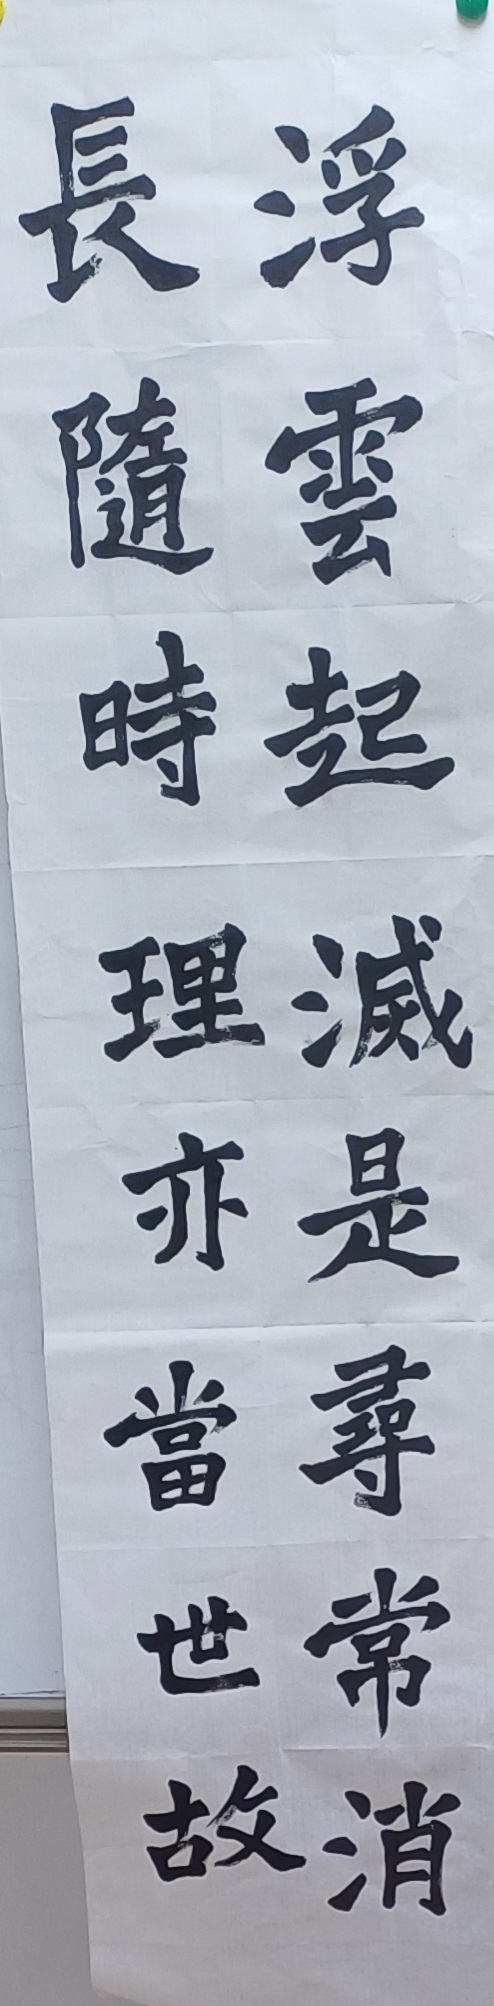 浮雲起滅是尋常消
長隨時理亦當世故